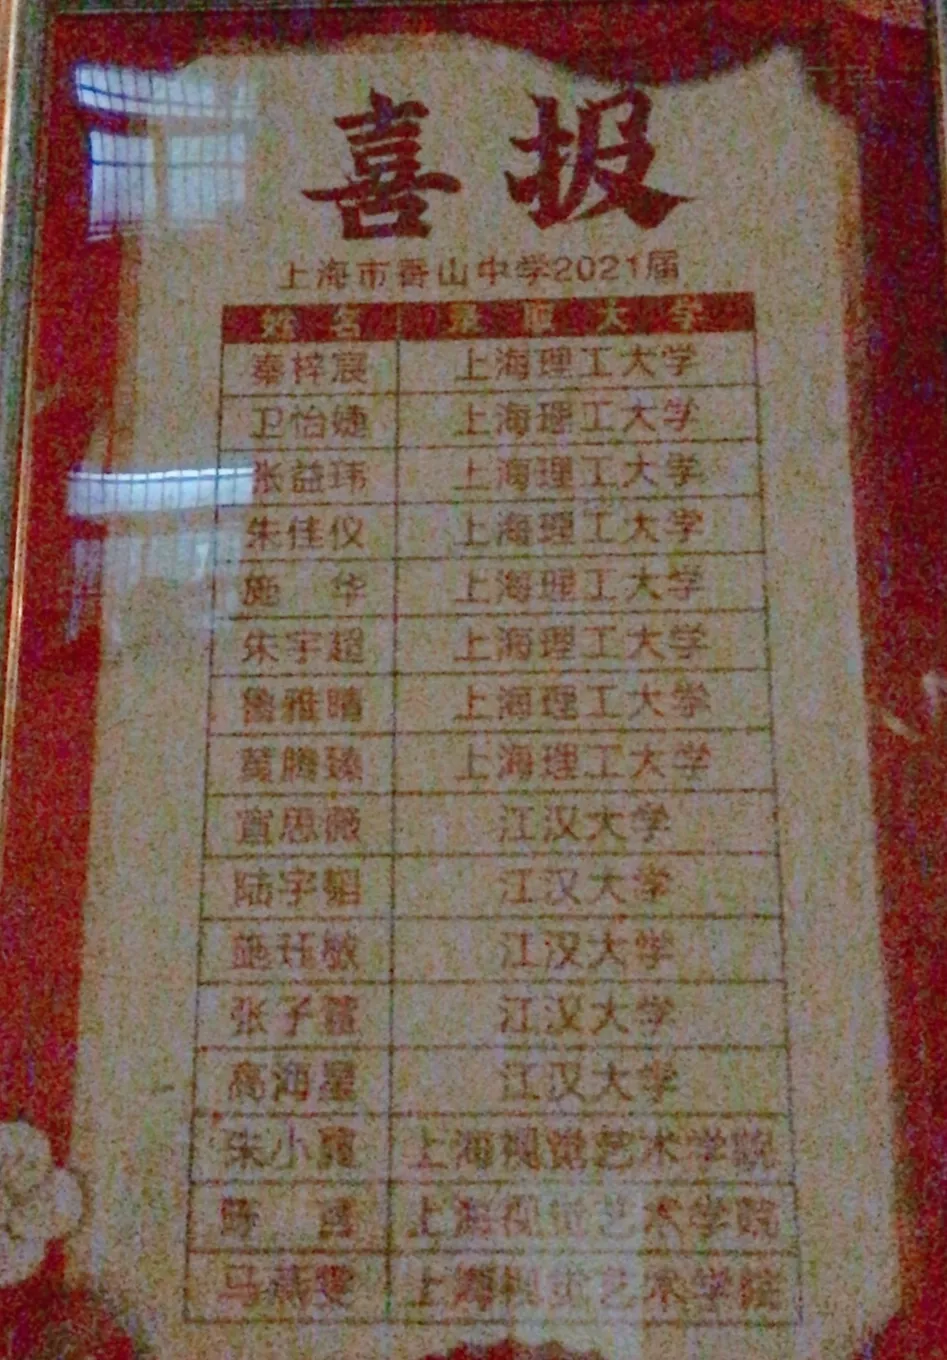 喜报
上海市香山中学2021届
姓名 录取大学
秦梓宸 上海理工大学
卫怡婕 上海理工大学
张益玮 上海理工大学
朱佳仪 上海理工大学
施 华 上海理工大学
朱宇超 上海理工大学
鲁雅晴 上海理工大学
黄腾臻 上海理工大学
宣思薇 江汉大学
陆宇韬 江汉大学
施珏敏 江汉大学
张子萱 江汉大学
高海星 江汉大学
朱小 上海视觉艺术学院
上海视觉艺术学院
马燕雯 上海视觉艺术学院